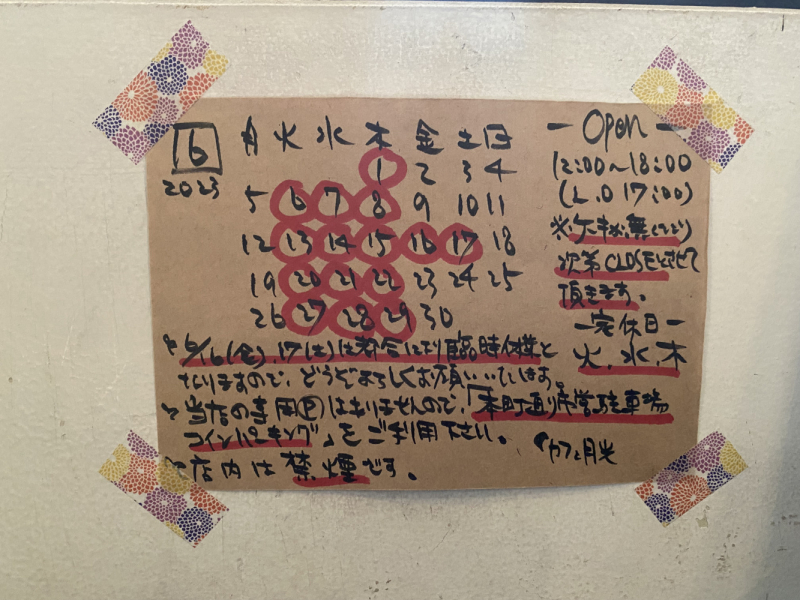 6
2023
月 火 水 木 金 土 日
1 2 3 4
5 6 7 8 9 10 11
12 13 14 15 16 17 18
19 20 21 22 23 24 25
26 27 28 29 30
ーOpenー
12:00〜18:00
(L.O 17:00)
※ケーキが無くなり
次第CLOSEとさせて
頂きます。
ー定休日ー
火、水、木
6/16(金)、17(土)は都合により臨時休業と
なりますので、どうぞよろしくお願いいたします。
当店の専用Ⓟはありませんので、「本町通り市営駐車場
コインパーキング」をご利用下さい。
店内は禁煙です。
カフェ月光